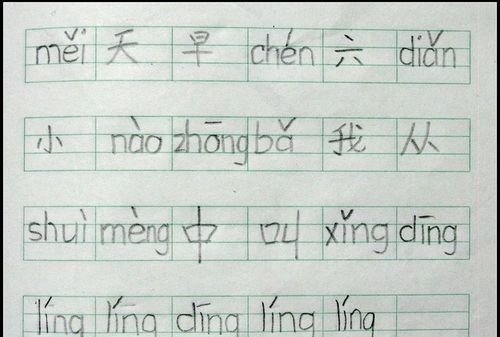 měi 天 早 chén 六 diǎn
小 nào zhōng bǎ 我 从
shuì mèng 中 叫 xǐng dīng
líng líng dīng líng líng